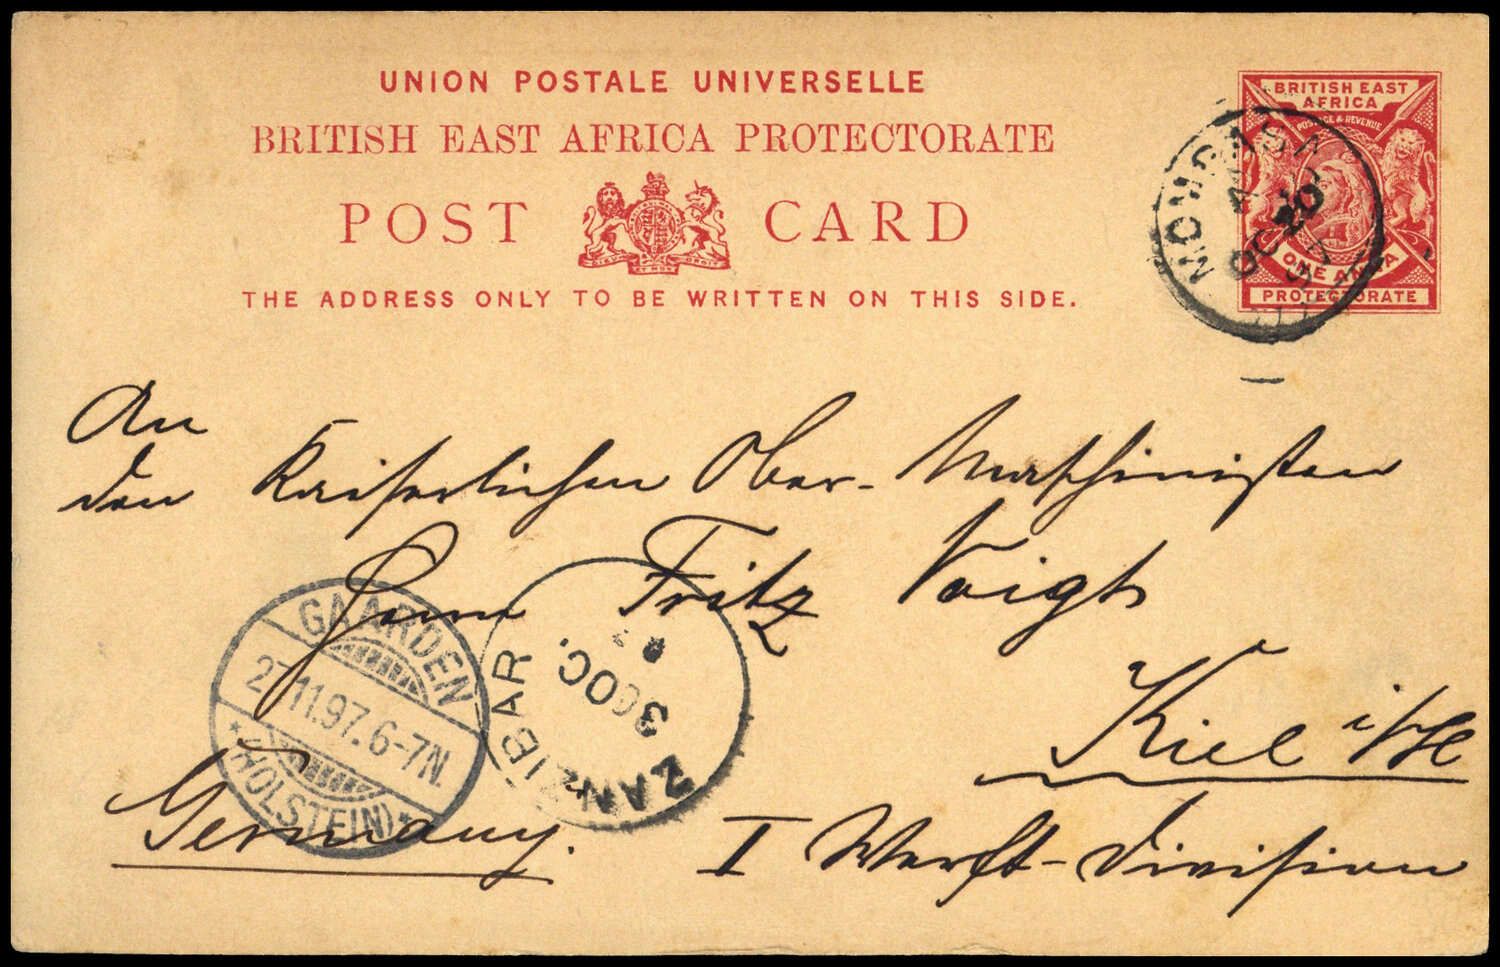 UNION POSTALE UNIVERSELLE
BRITISH EAST AFRICA PROTECTORATE
POST CARD
THE ADDRESS ONLY TO BE WRITTEN ON THIS SIDE.
BRITISH EAST
AFRICA
POSTAGE & REVENUE
ONE ANNA
PROTECTORATE
MOMBASA
OC 20
97
An
den Kaiserlichen Ober-Maschinisten
Herrn Fritz Voigt
Kiel i/H
I Werft-Division
Germany.
GAARDEN
27.11.97.6-7N.
*(HOLSTEIN)*
ZANZIBAR
OC.